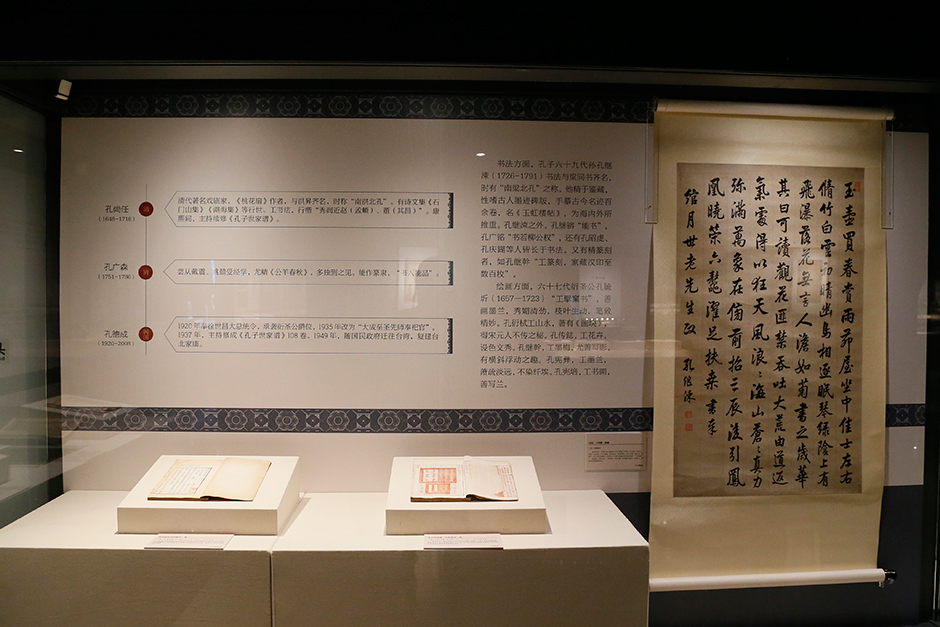 孔尚任
(1648-1718)
清
清代著名戏剧家，《桃花扇》作者，与洪昇齐名，时称“南洪北孔”。有诗文集《石
门山集》《湖海集》等行世。工书法，行楷“秀润近赵（孟頫）、董（其昌）”。康
熙间，主持续修《孔子世家谱》。
孔广森
(1751-1786)
清
尤精《公羊春秋》，多独到之见。能作篆隶、“书入能品”。
孔德成
(1920-2008)
1920年奉徐世昌大总统令，承袭衍圣公爵位，1935年改为“大成至圣先师奉祀官”。
1937年，主持修成《孔子世家谱》108卷。1949年，随国民政府迁往台湾，复建台
北家庙。
书法方面，孔子六十九代孙孔继
涑（1726-1791）书法与梁同书齐名，
时有“南梁北孔”之称。他精于鉴藏，
性嗜古人墨迹碑版，手摹古今名迹百
余卷，名《玉虹楼帖》，为海内外所
推重。孔继涑之外，孔继

“能书”，
孔广铭“书若柳公权”，还有孔昭虔、
孔庆镕等人皆长于书法。又有精篆刻
者，如孔继

“工篆刻，家藏汉印至
数百枚”。
绘画方面，六十七代衍圣公孔毓
圻（1657—1723）“工擘窠书”，善
画墨兰，秀媚清劲，枝叶生动，笔致
精妙。孔衍栻工山水，著有《画诀》，
得宋元人不传之秘。孔传鋕，工花卉，
设色文秀。孔继

，工墨梅，尤善写影，
有横斜浮动之趣。孔宪彝，工墨兰，
萧疏淡远，不染纤埃。孔宪培，工书画，
善写兰。
玉壶買春賞雨茆屋坐中佳士左右
脩竹白雲初晴幽鳥相逐眠琴綠陰上有
飛瀑落花無言人澹如菊書之歲華
其曰可讀觀花匪禁吞吐大荒由道返
氣處得以狂天風浪〻海山蒼〻真力
弥滿萬象在傍前招三辰後引鳳
凰曉策六鼇濯足扶桑書奉
綰月世老先生政 孔繼涑